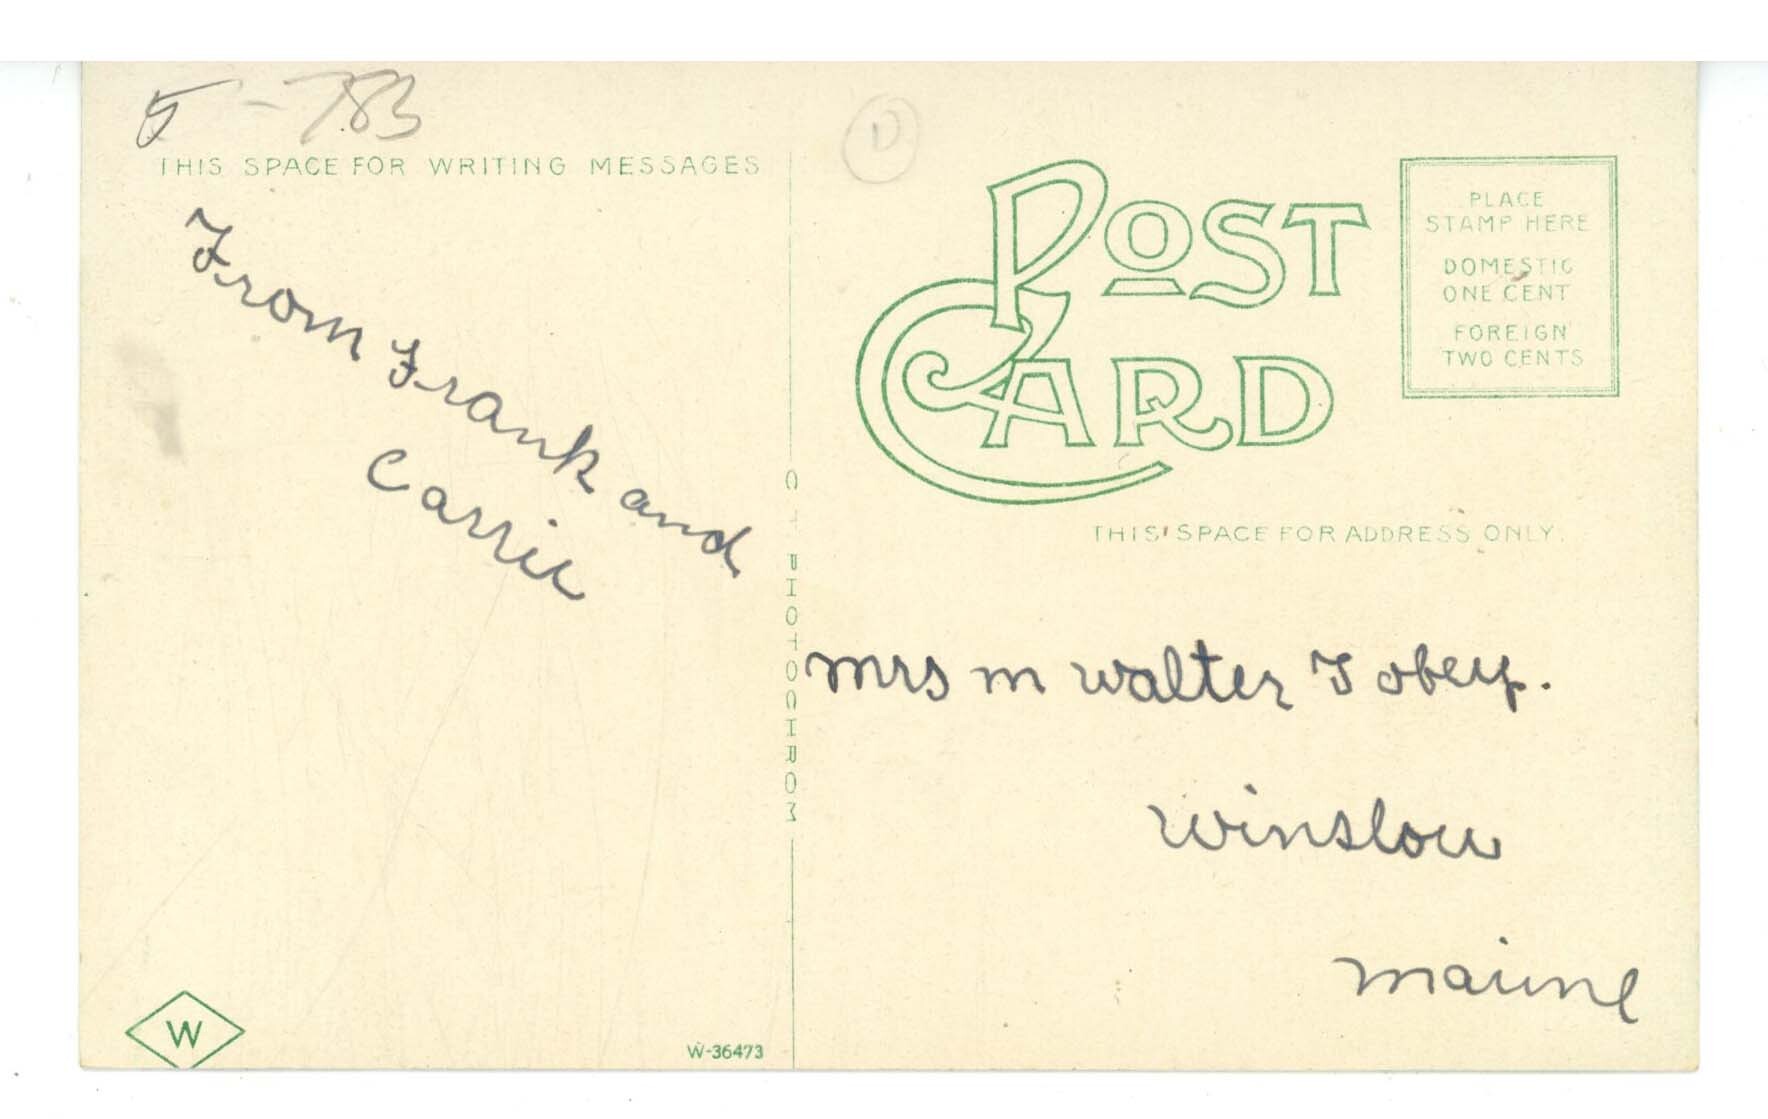 5-783
D
THIS SPACE FOR WRITING MESSAGES
From Frank and
Carrie
POST
CARD
PLACE
STAMP HERE
DOMESTIC
ONE CENT
FOREIGN
TWO CENTS
THIS SPACE FOR ADDRESS ONLY.
C.T. PHOTOCHROM
mrs m walter Tobey.
winslow
maine
W
W-36473